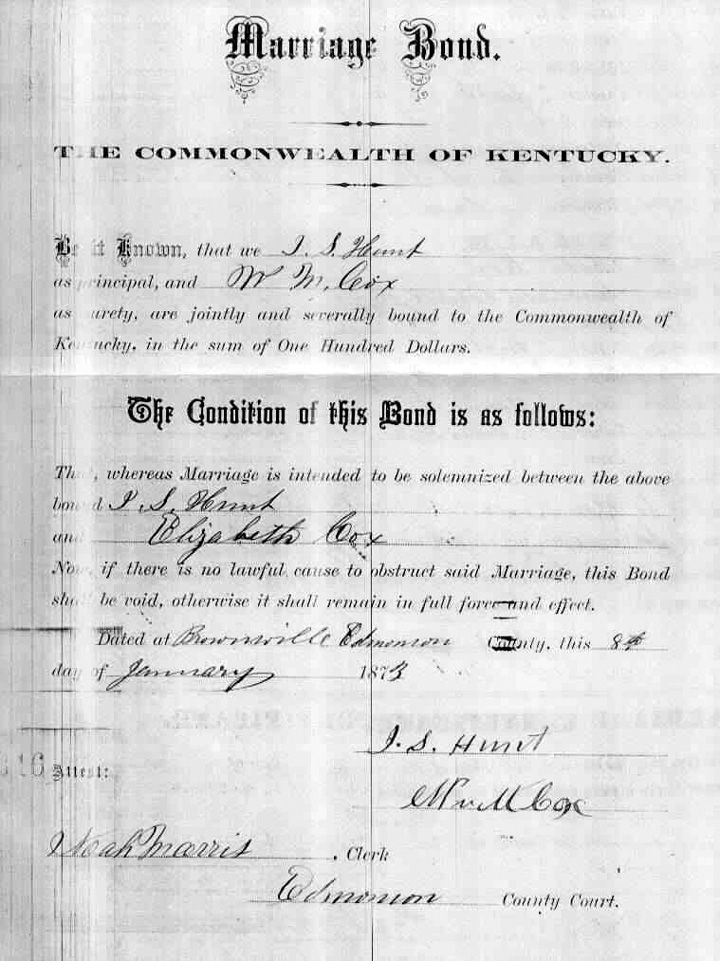 Marriage Bond.
THE COMMONWEALTH OF KENTUCKY.
Be it Known, that we J. S. Hunt
as principal, and Wm M. Cox
as surety, are jointly and severally bound to the Commonwealth of
Kentucky, in the sum of One Hundred Dollars.
The Condition of this Bond is as follows:
That, whereas Marriage is intended to be solemnized between the above
bound J. S. Hunt
and Elizabeth Cox
Now, if there is no lawful cause to obstruct said Marriage, this Bond
shall be void, otherwise it shall remain in full force and effect.
Dated at Brownsville Edmonson County, this 8th
day of January 1873
J. S. Hunt
Wm M Cox
Attest:
Noah Morris, Clerk
Edmonson County Court.